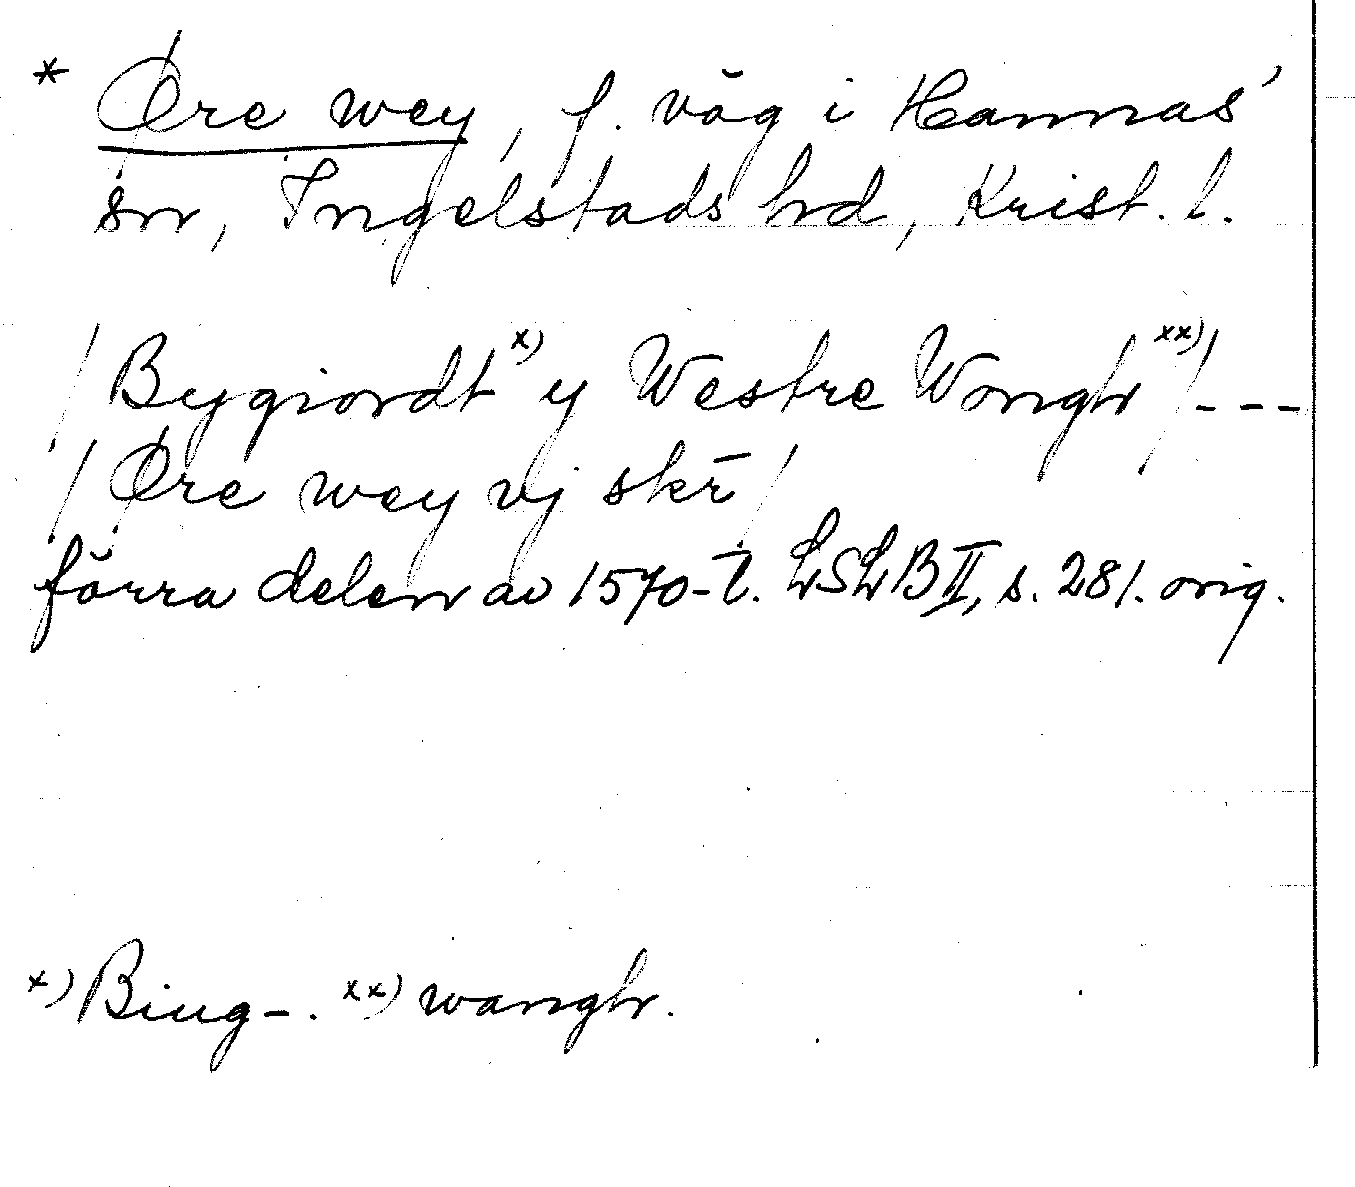 * Øre wey, f. väg i Hannas'
sn, Ingelstads hd, Krist. l.
/Bygiordt x) y Westre Wongh xx)/---
/Øre wey vj skr̄/
förra delen av 1570-t. LSLB II, s. 281. orig.
x) Biug-. xx) wangh.